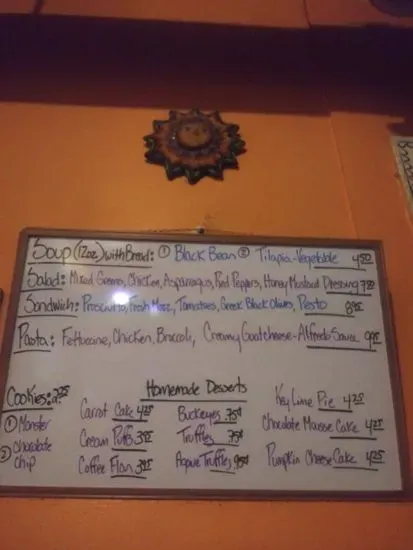 Soup (12oz) with Bread: ① Black Bean ② Tilapia-Vegetable 4.50
Salad: Mixed Greens, Chicken, Asparagus, Red Peppers, Honey Mustard Dressing 7.95
Sandwich: Prosciutto, Fresh Mozz, Tomatoes, Greek Black Olives, Pesto 8.95
Pasta: Fettuccine, Chicken, Broccoli, Creamy Goatcheese-Alfredo Sauce 9.95
Homemade Desserts
Cookies: 2.25
① Monster
② Chocolate chip
Carrot Cake 4.25
Cream Puffs 3.95
Coffee Flan 3.95
Buckeyes .75¢
Truffles .75¢
Agave Truffles .95¢
Key Lime Pie 4.25
Chocolate Mousse Cake 4.25
Pumpkin Cheese Cake 4.25